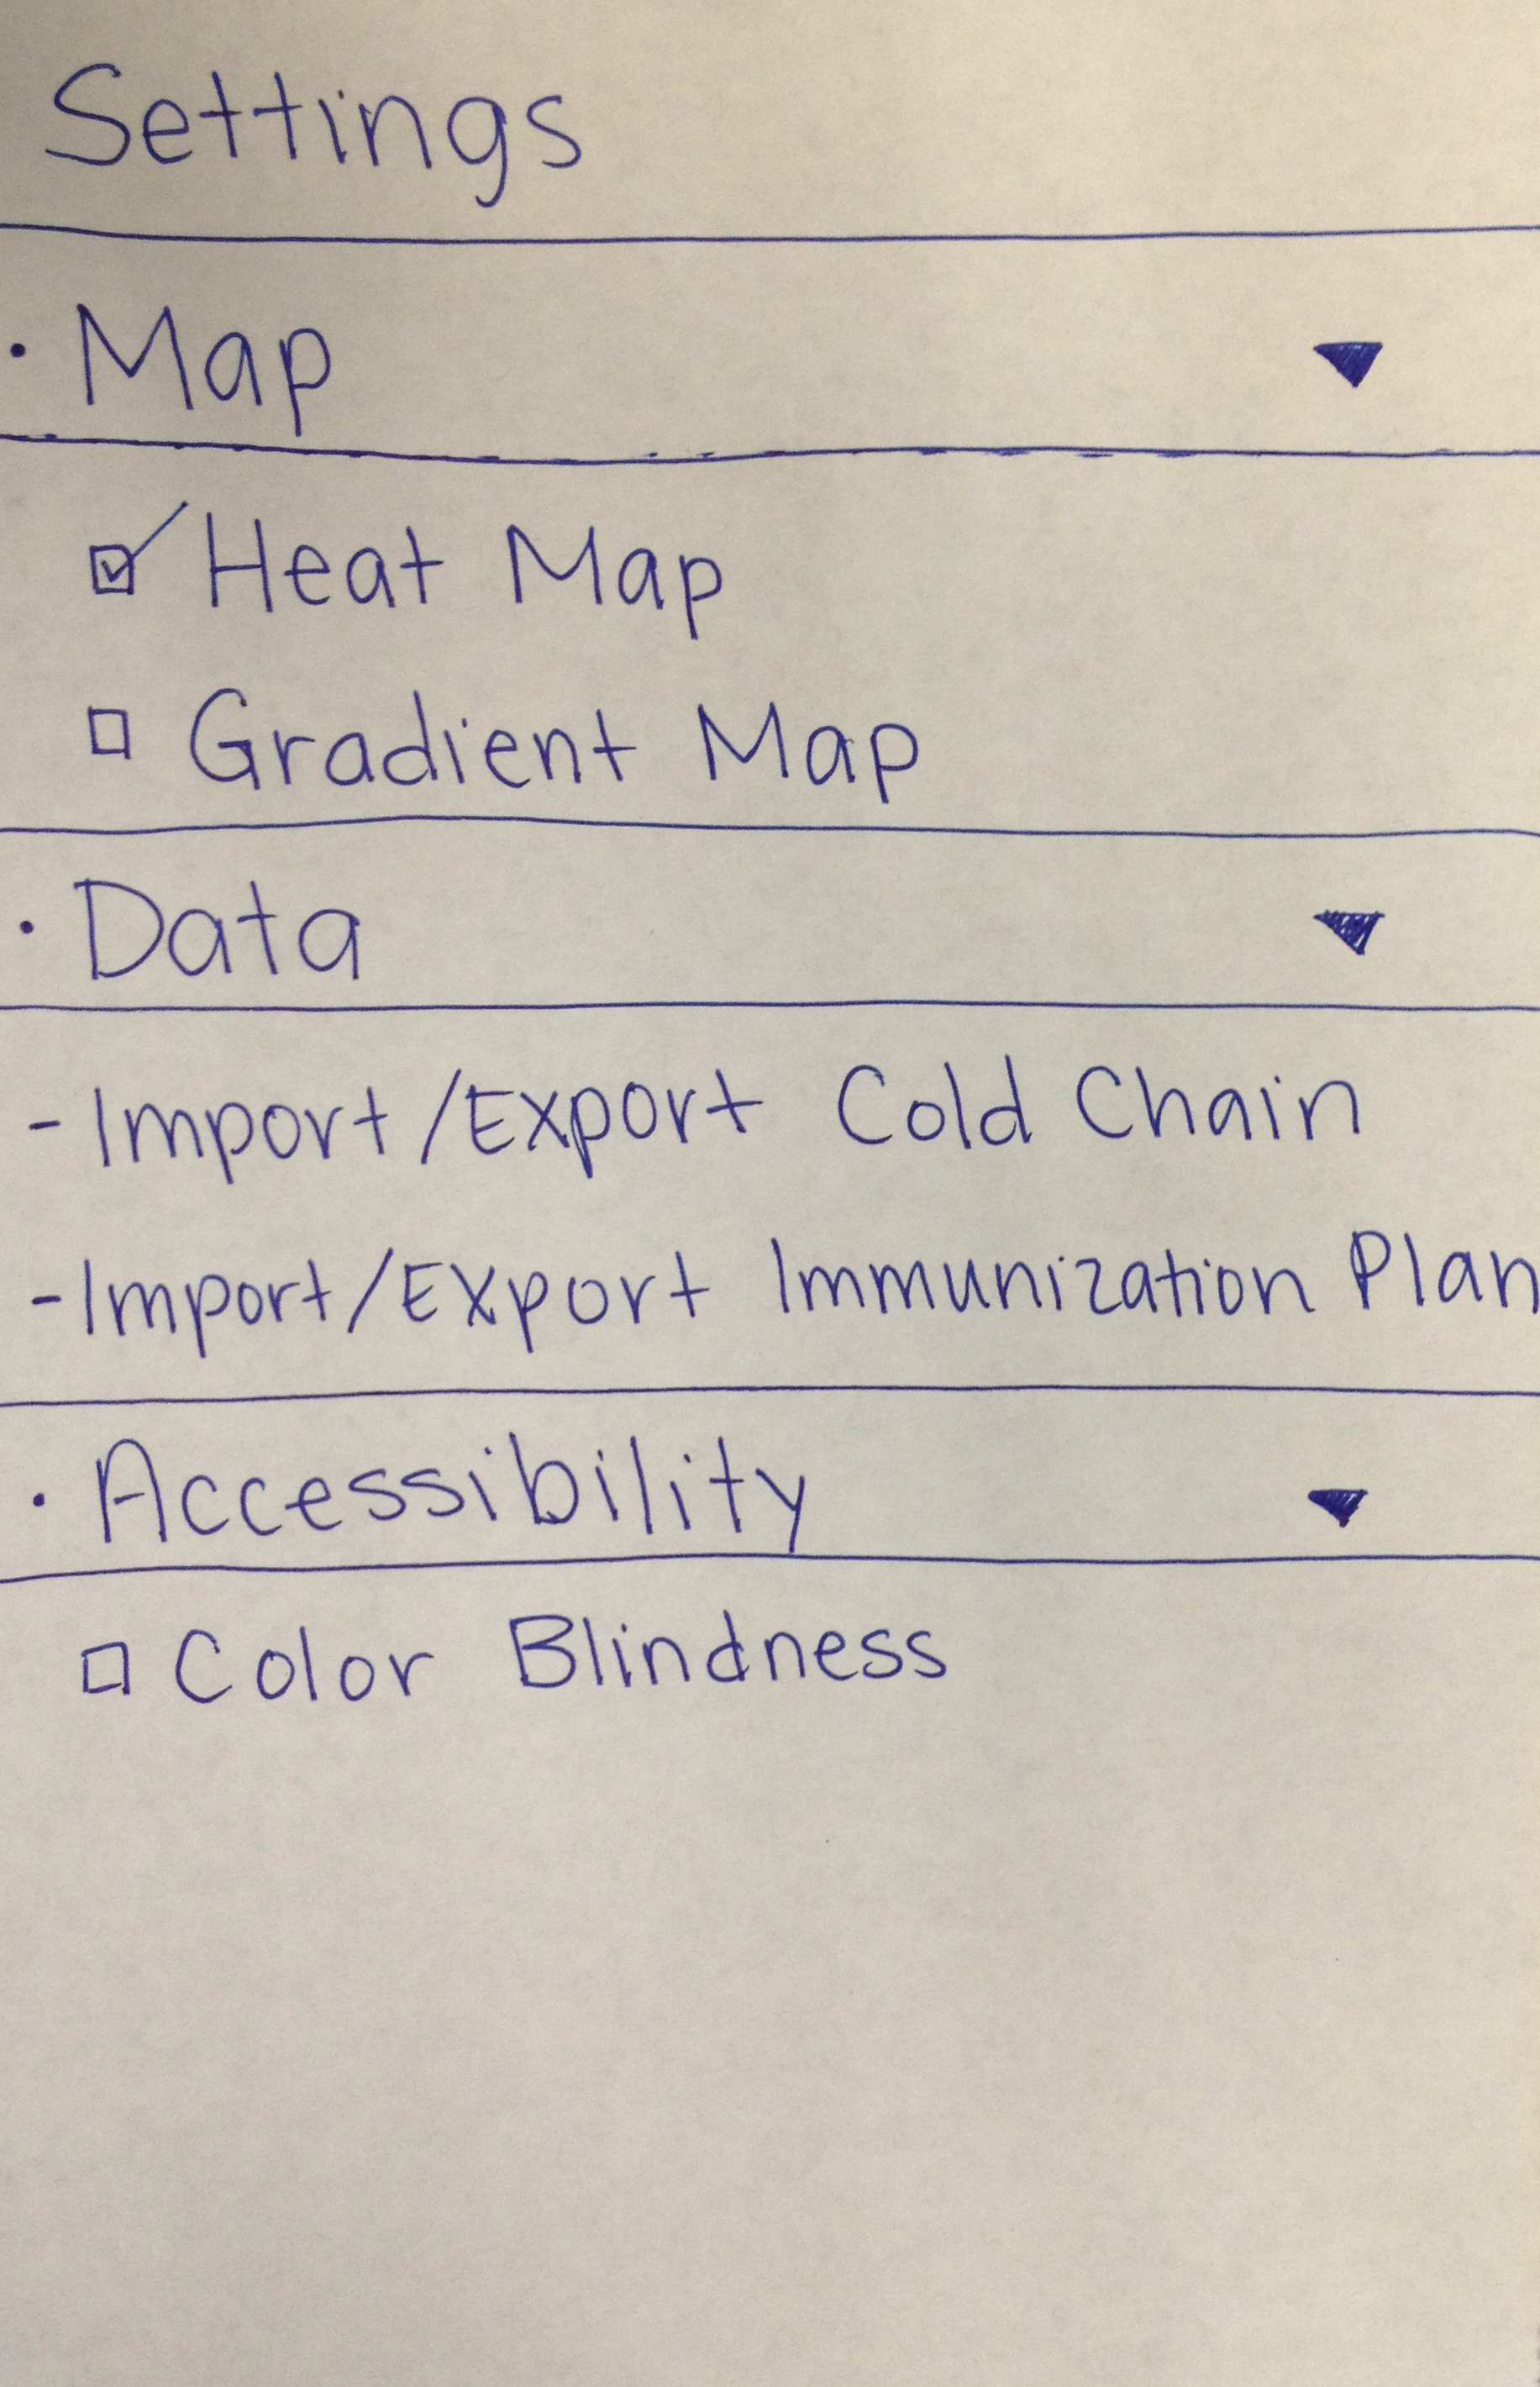 Settings
· Map ▼
☑ Heat Map
☐ Gradient Map
· Data ▼
- Import/Export Cold Chain
- Import/Export Immunization Plan
· Accessibility ▼
☐ Color Blindness